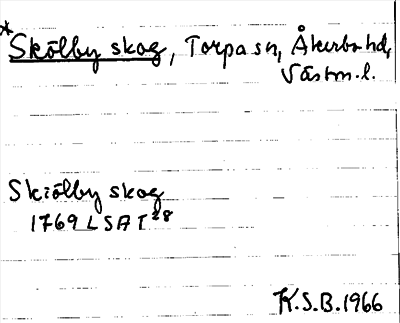 * Skölby skog, Torpa sn, Åkerbo hd,
Västm. l.
Skiölby skog
1769 LSA T 28
K.S.B. 1966